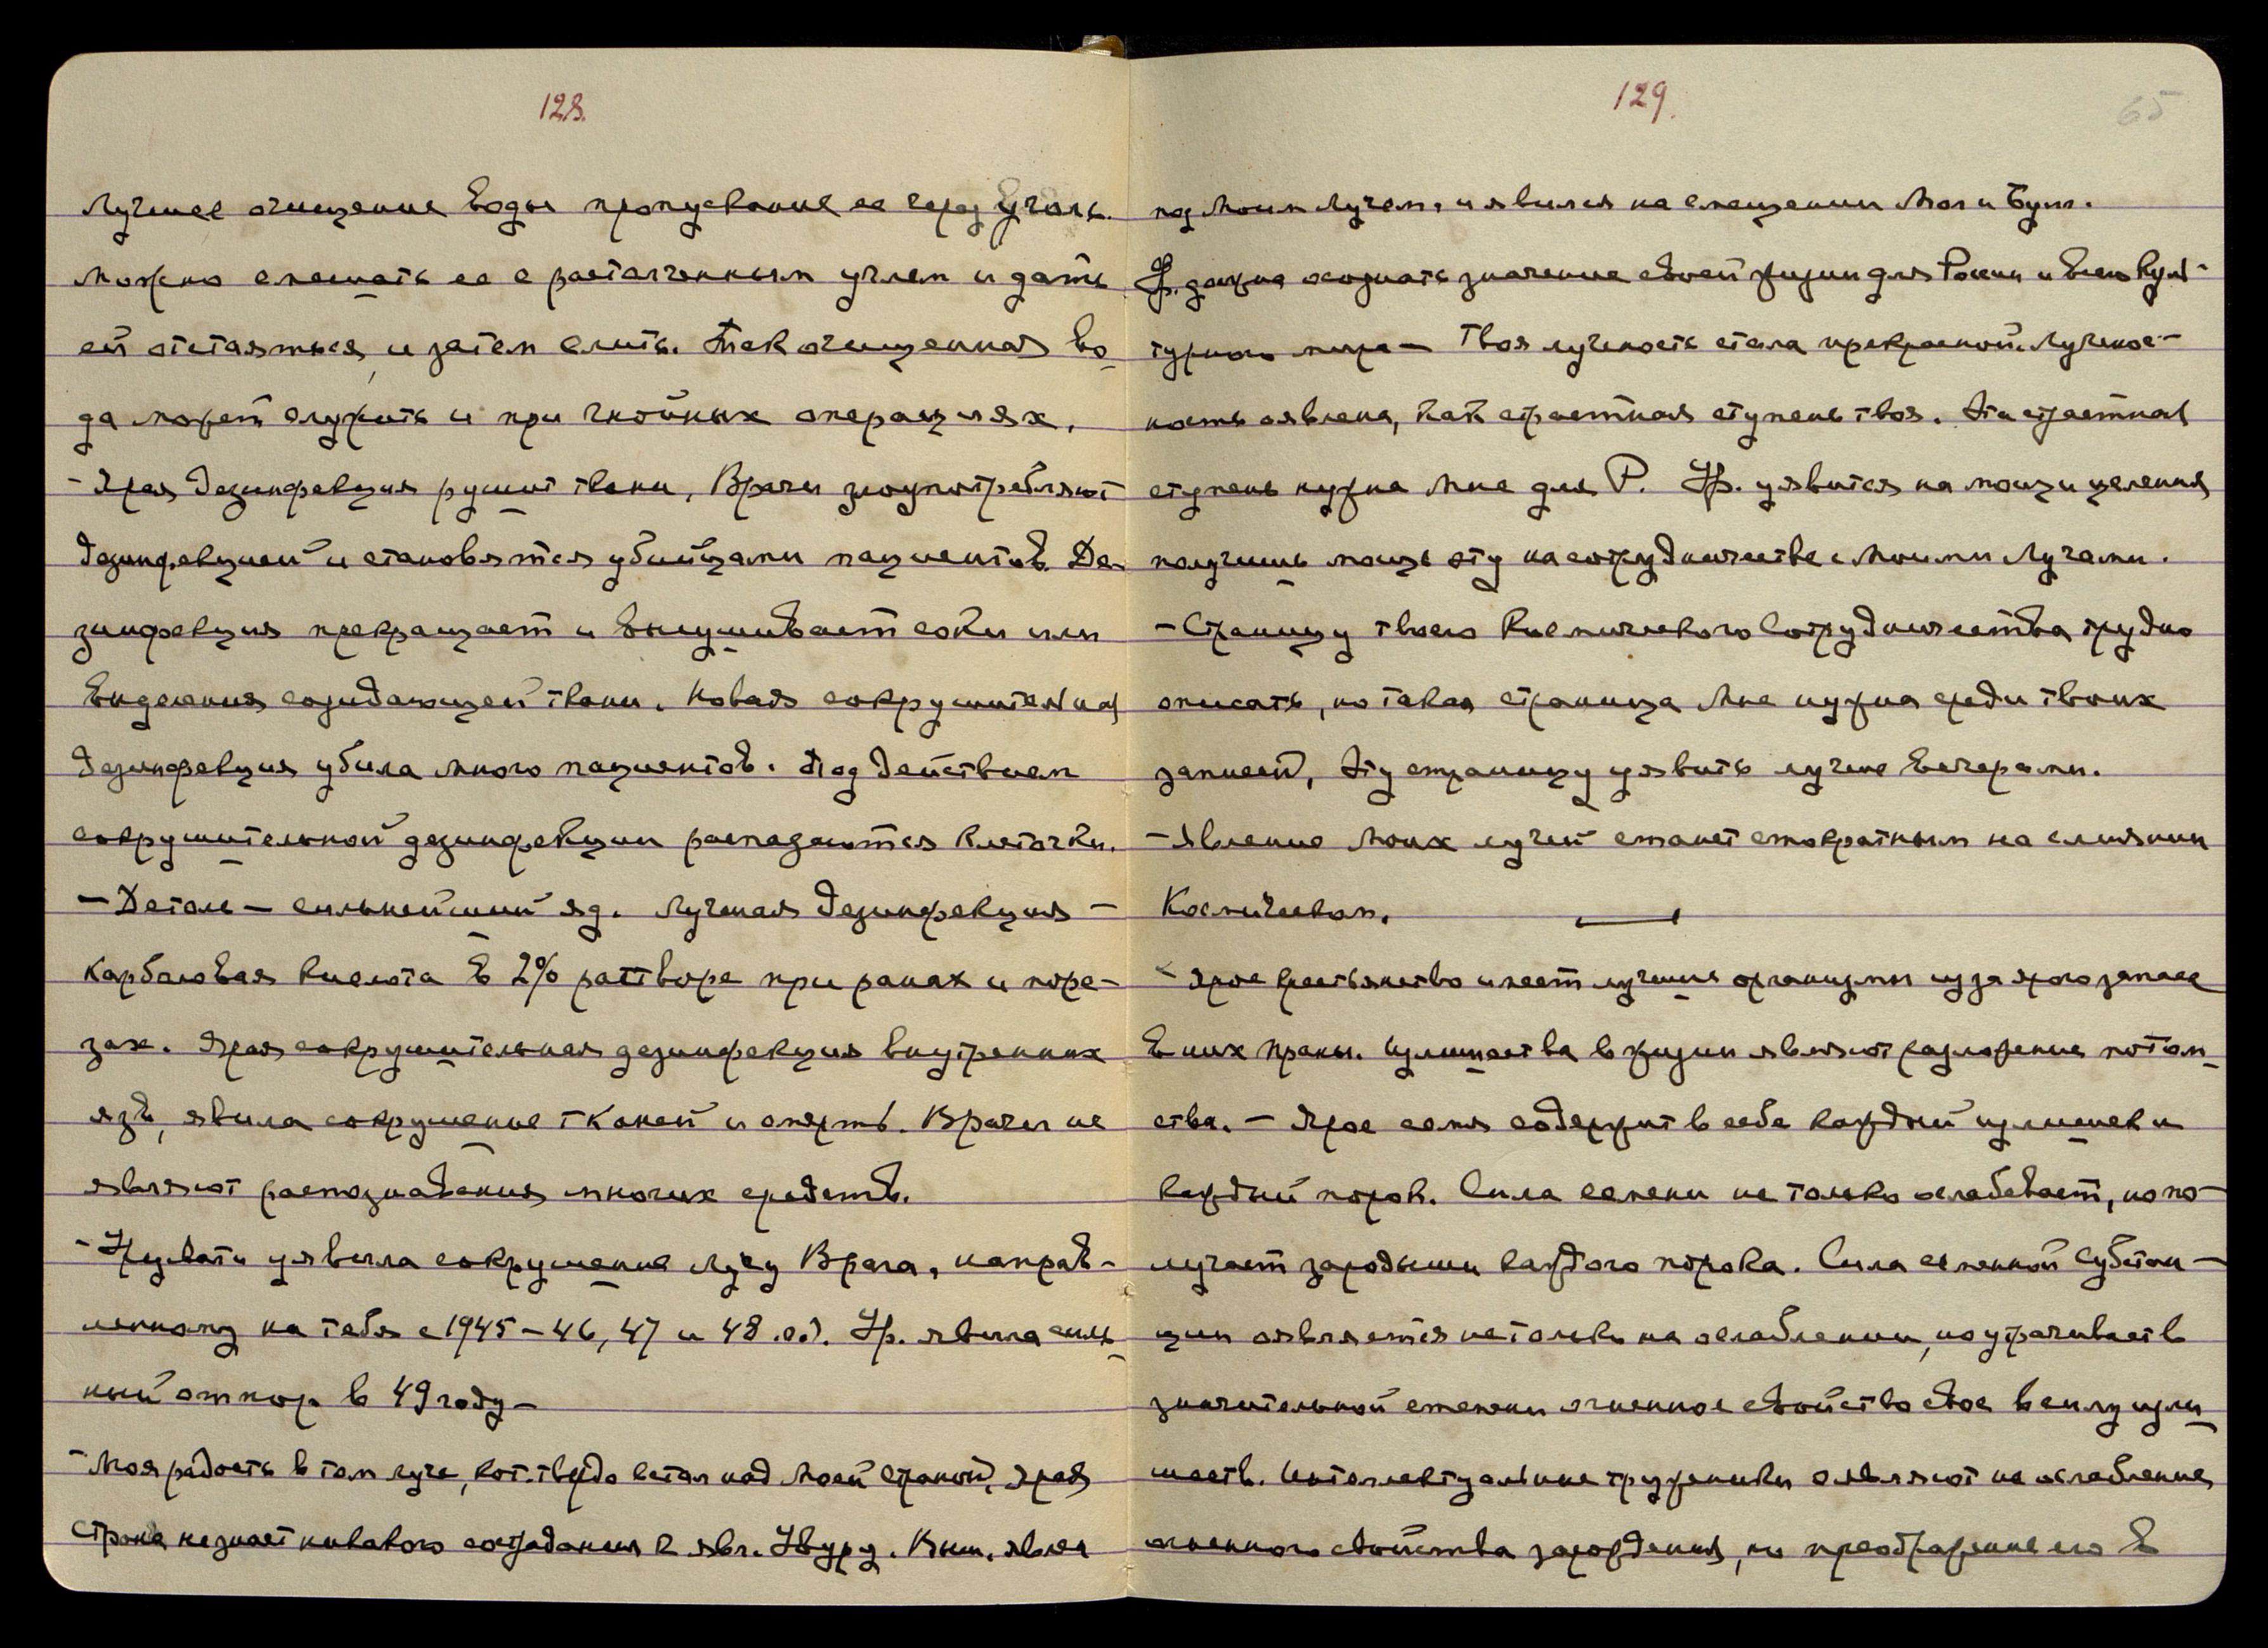 128.
Лучшее очищение воды пропускание ее через уголь.
Можно смешать ее с растолченным углем и дать
ей отстояться, и затем слить. Так очищенная во-
да может служить и при гнойных операциях.
- Ярая дезинфекция рушит ткани, Врачи злоупотребляют
дезинфекцией и становятся убийцами пациентов. Де-
зинфекция прекращает и высушивает соки или
выделения созидающей ткани. Новая сокрушительная
дезинфекция убила много пациентов. Под действием
сокрушительной дезинфекции распадаются клеточки.
- Деталь - сильнейший яд. Лучшая дезинфекция -
Карболовая кислота в 2% растворе при ранах и поре-
зах. Ярая сокрушительная дезинфекция внутренних
язв, явила сокрушение тканей и смерть. Врачи не
являют распознавания многих средств.
- Урувати уявила сокрушение лучу Врага, направ-
ленному на тебя с 1945-46, 47 и 48. Ур. явила силь-
ный отпор в 49 году -
- Моя радость в том луче, кот. твердо встал над Моей страной, Ярая
страна не знает никакого сострадания к явл. Увуру.
129.
65
под Моим Лучем, и явился на смещении
Ур. должна осознать значение своей жизни для России и всего Куль-
турного мира - Твоя лучистость стала прекрасной. Лучистос-
ность оявлена, как страстная ступень твоя. Эта страстная
ступень нужна Мне для Р. Ур. уявится на мощи целения
получишь мощь эту на сотрудничестве с Моими Лучами.
- Страницу твоего Космического Сотрудничества трудно
описать, но такая страница Мне нужна среди твоих
записей, Эту страницу уявить лучше вечерами.
- Явление Моих лучей станет стократным на слиянии
Космическом.
- Ярое крестьянство имеет лучшие организмы из за ярого запаса
в них праны. Излишества в жизни являют разложение потом-
ства. - Ярое семя содержит в себе каждый излишек и
каждый порок. Сила семени не только ослабевает, но по-
лучает зародыши каждого порока. Сила семенной субстан-
ции оявляется не только на ослаблении, но утрачивает в
значительной степени огненное свойство свое в силу изли-
шеств. Интеллектуальные труженики оявляют не ослабление
огненного свойства зарождения, но преображение его в